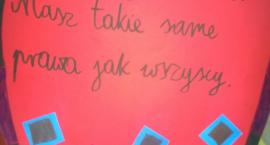 Masz takie same
prawa jak wszyscy.